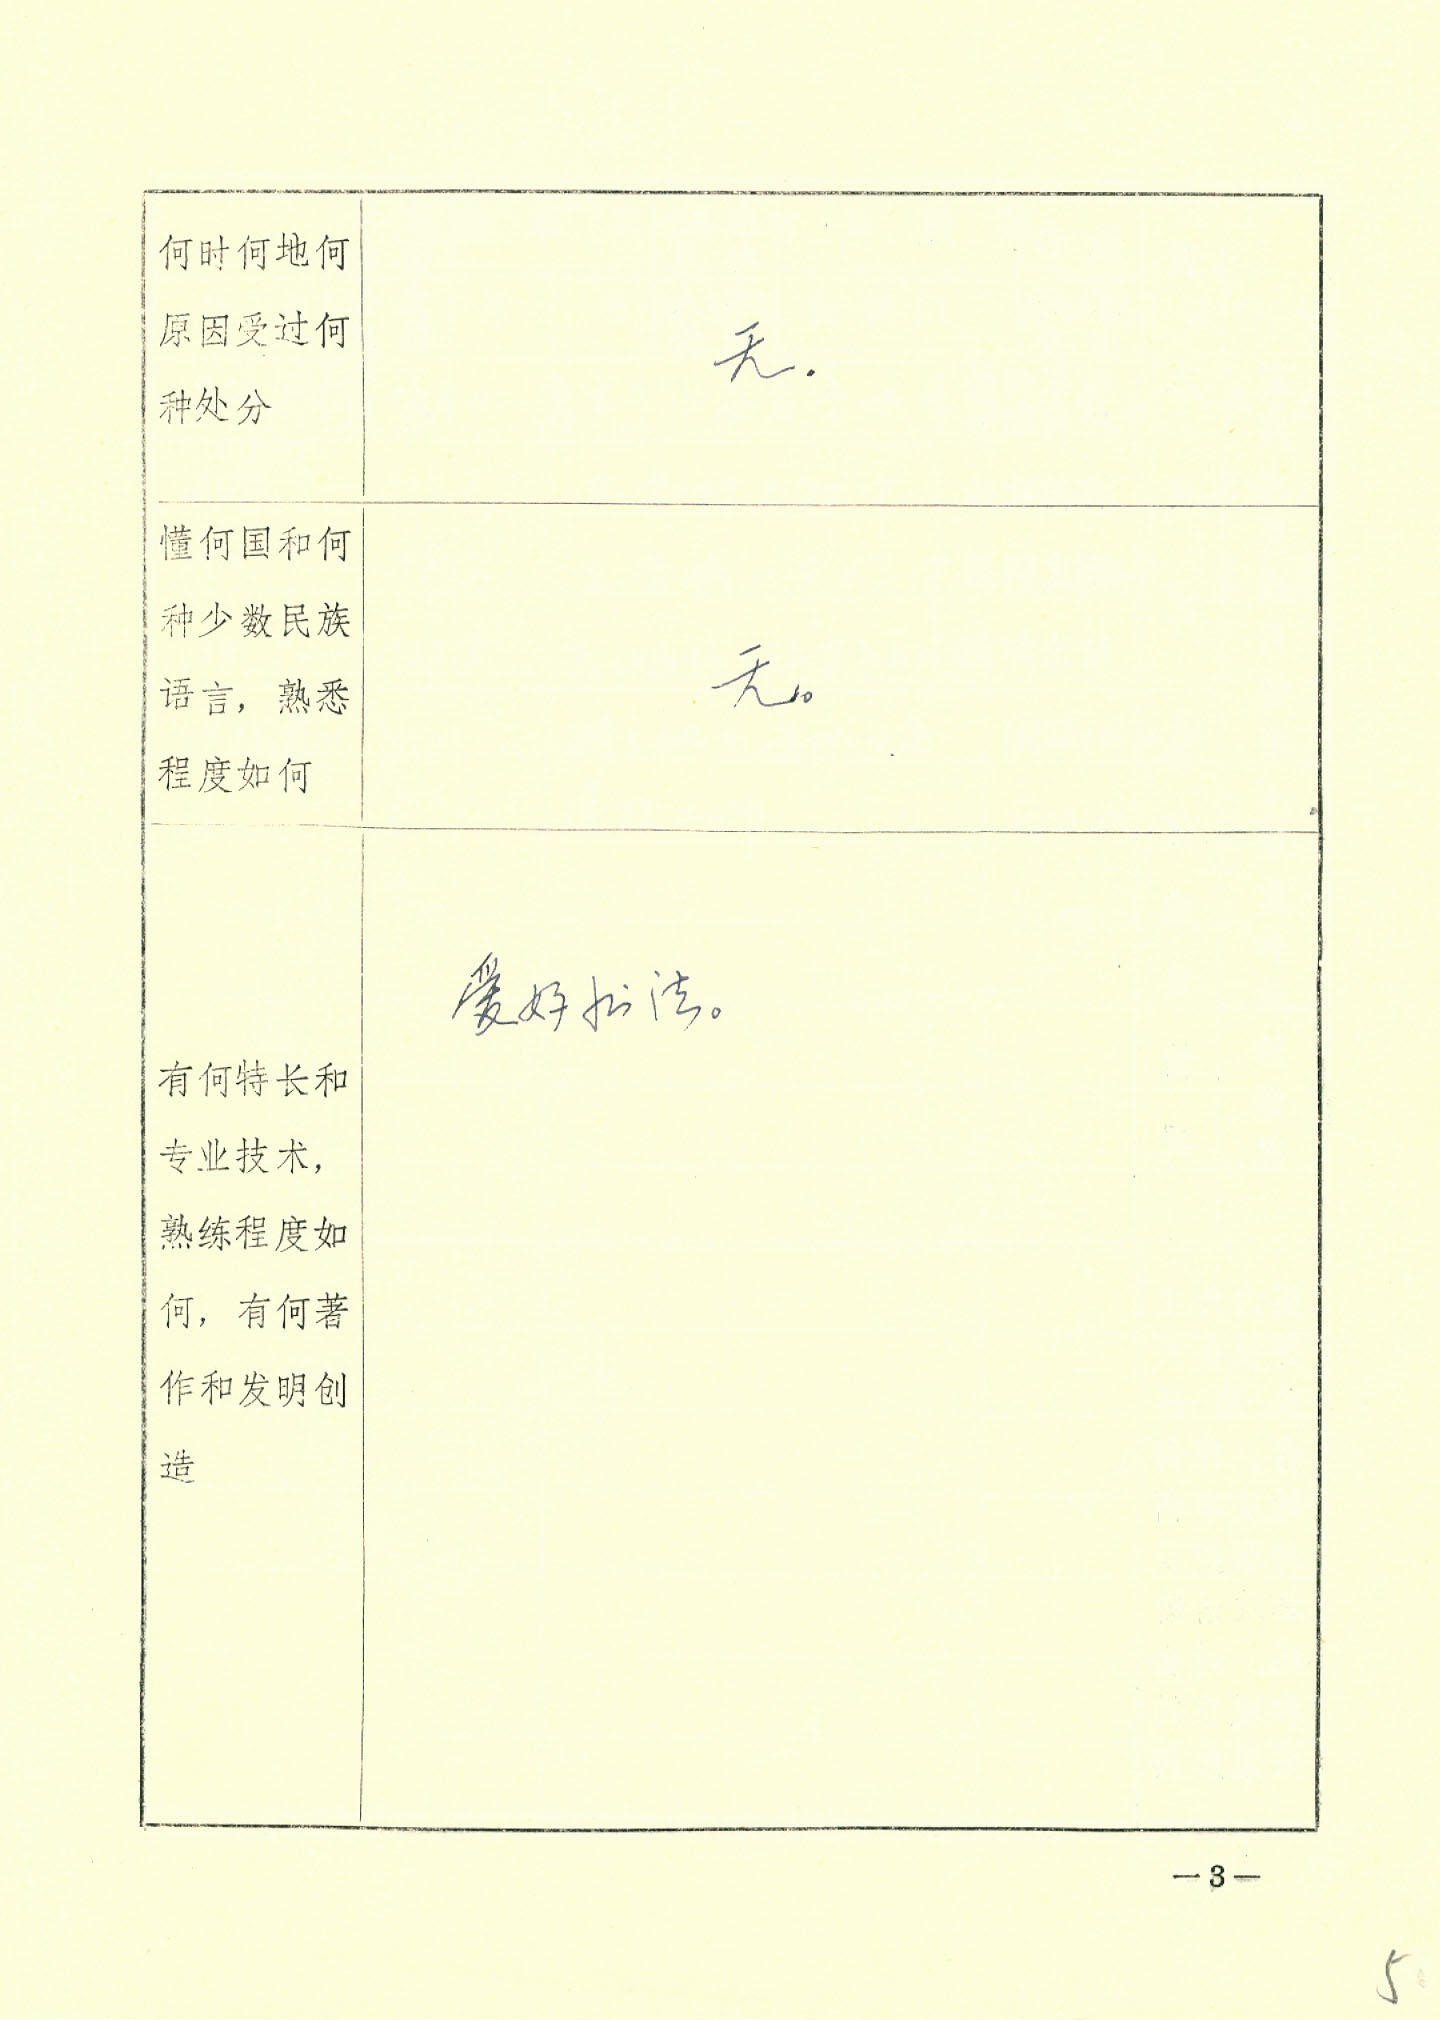 何时何地何
原因受过何
种处分
无.
懂何国和何
种少数民族
语言，熟悉
程度如何
无。
爱好书法。
有何特长和
专业技术，
熟练程度如
何，有何著
作和发明创
造
—3—
5